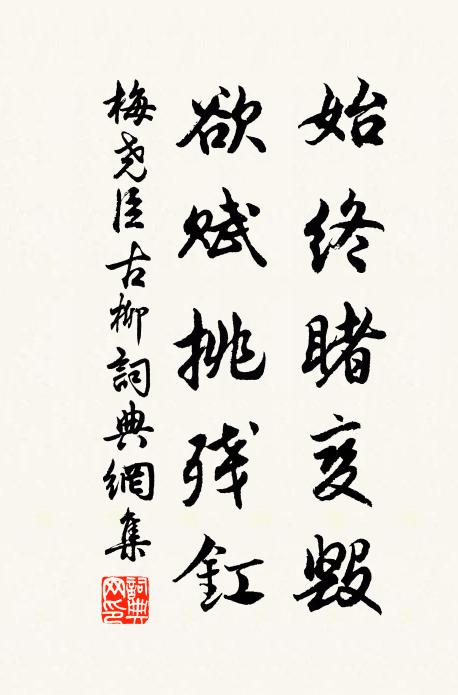 始终睹变毁
欲赋挑残釭
梅尧臣古柳詞典網集
詞典网印